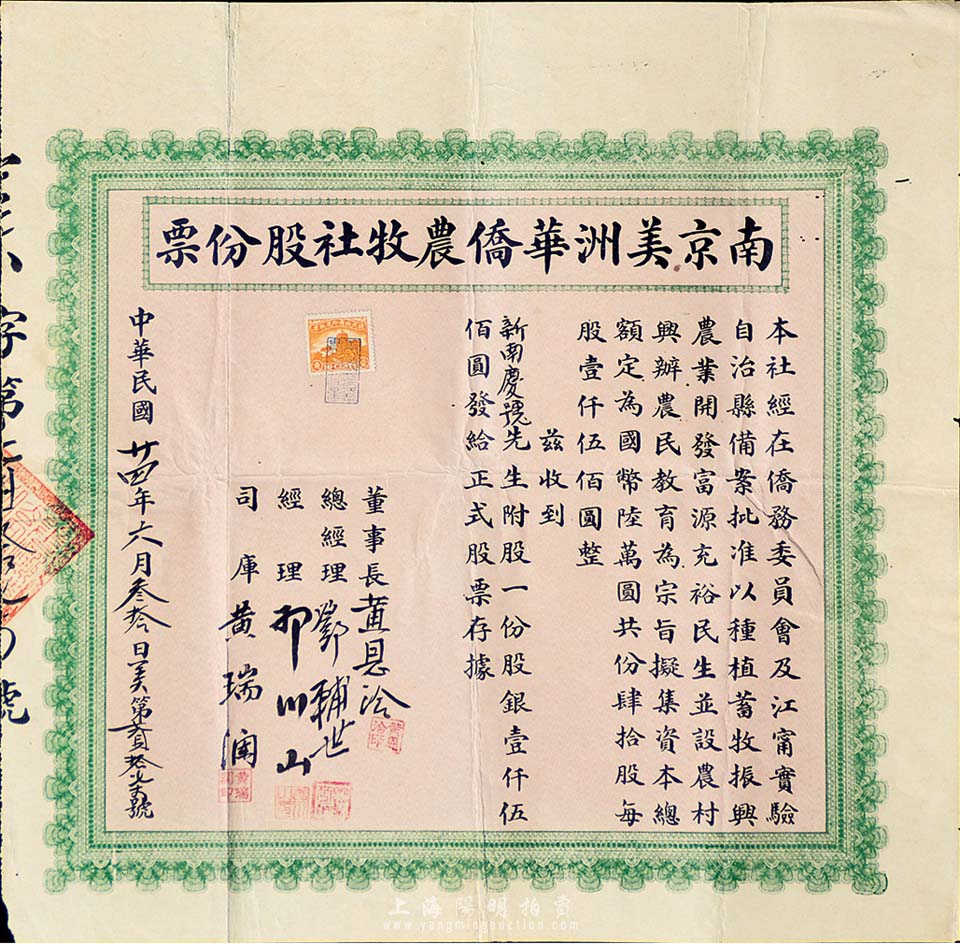 南京美洲華僑農牧社股份票
本社經在僑務委員會及江甯實驗
自治縣備案批准以種植蓄牧振興
農業開發富源充裕民生並設農村
興辦農民教育為宗旨擬集資本總
額定為國幣陸萬圓共份肆拾股每
股壹仟伍佰圓整
茲收到
新南慶號先生附股一份股銀壹仟伍
佰圓發給正式股票存據
董事長黃恩洽
總經理鄧輔世
經理 川山
司庫黃瑞澜
中華民國廿四年六月叁拾日美第 號
字第 號
上海陽明拍賣
www.yangmingauction.com